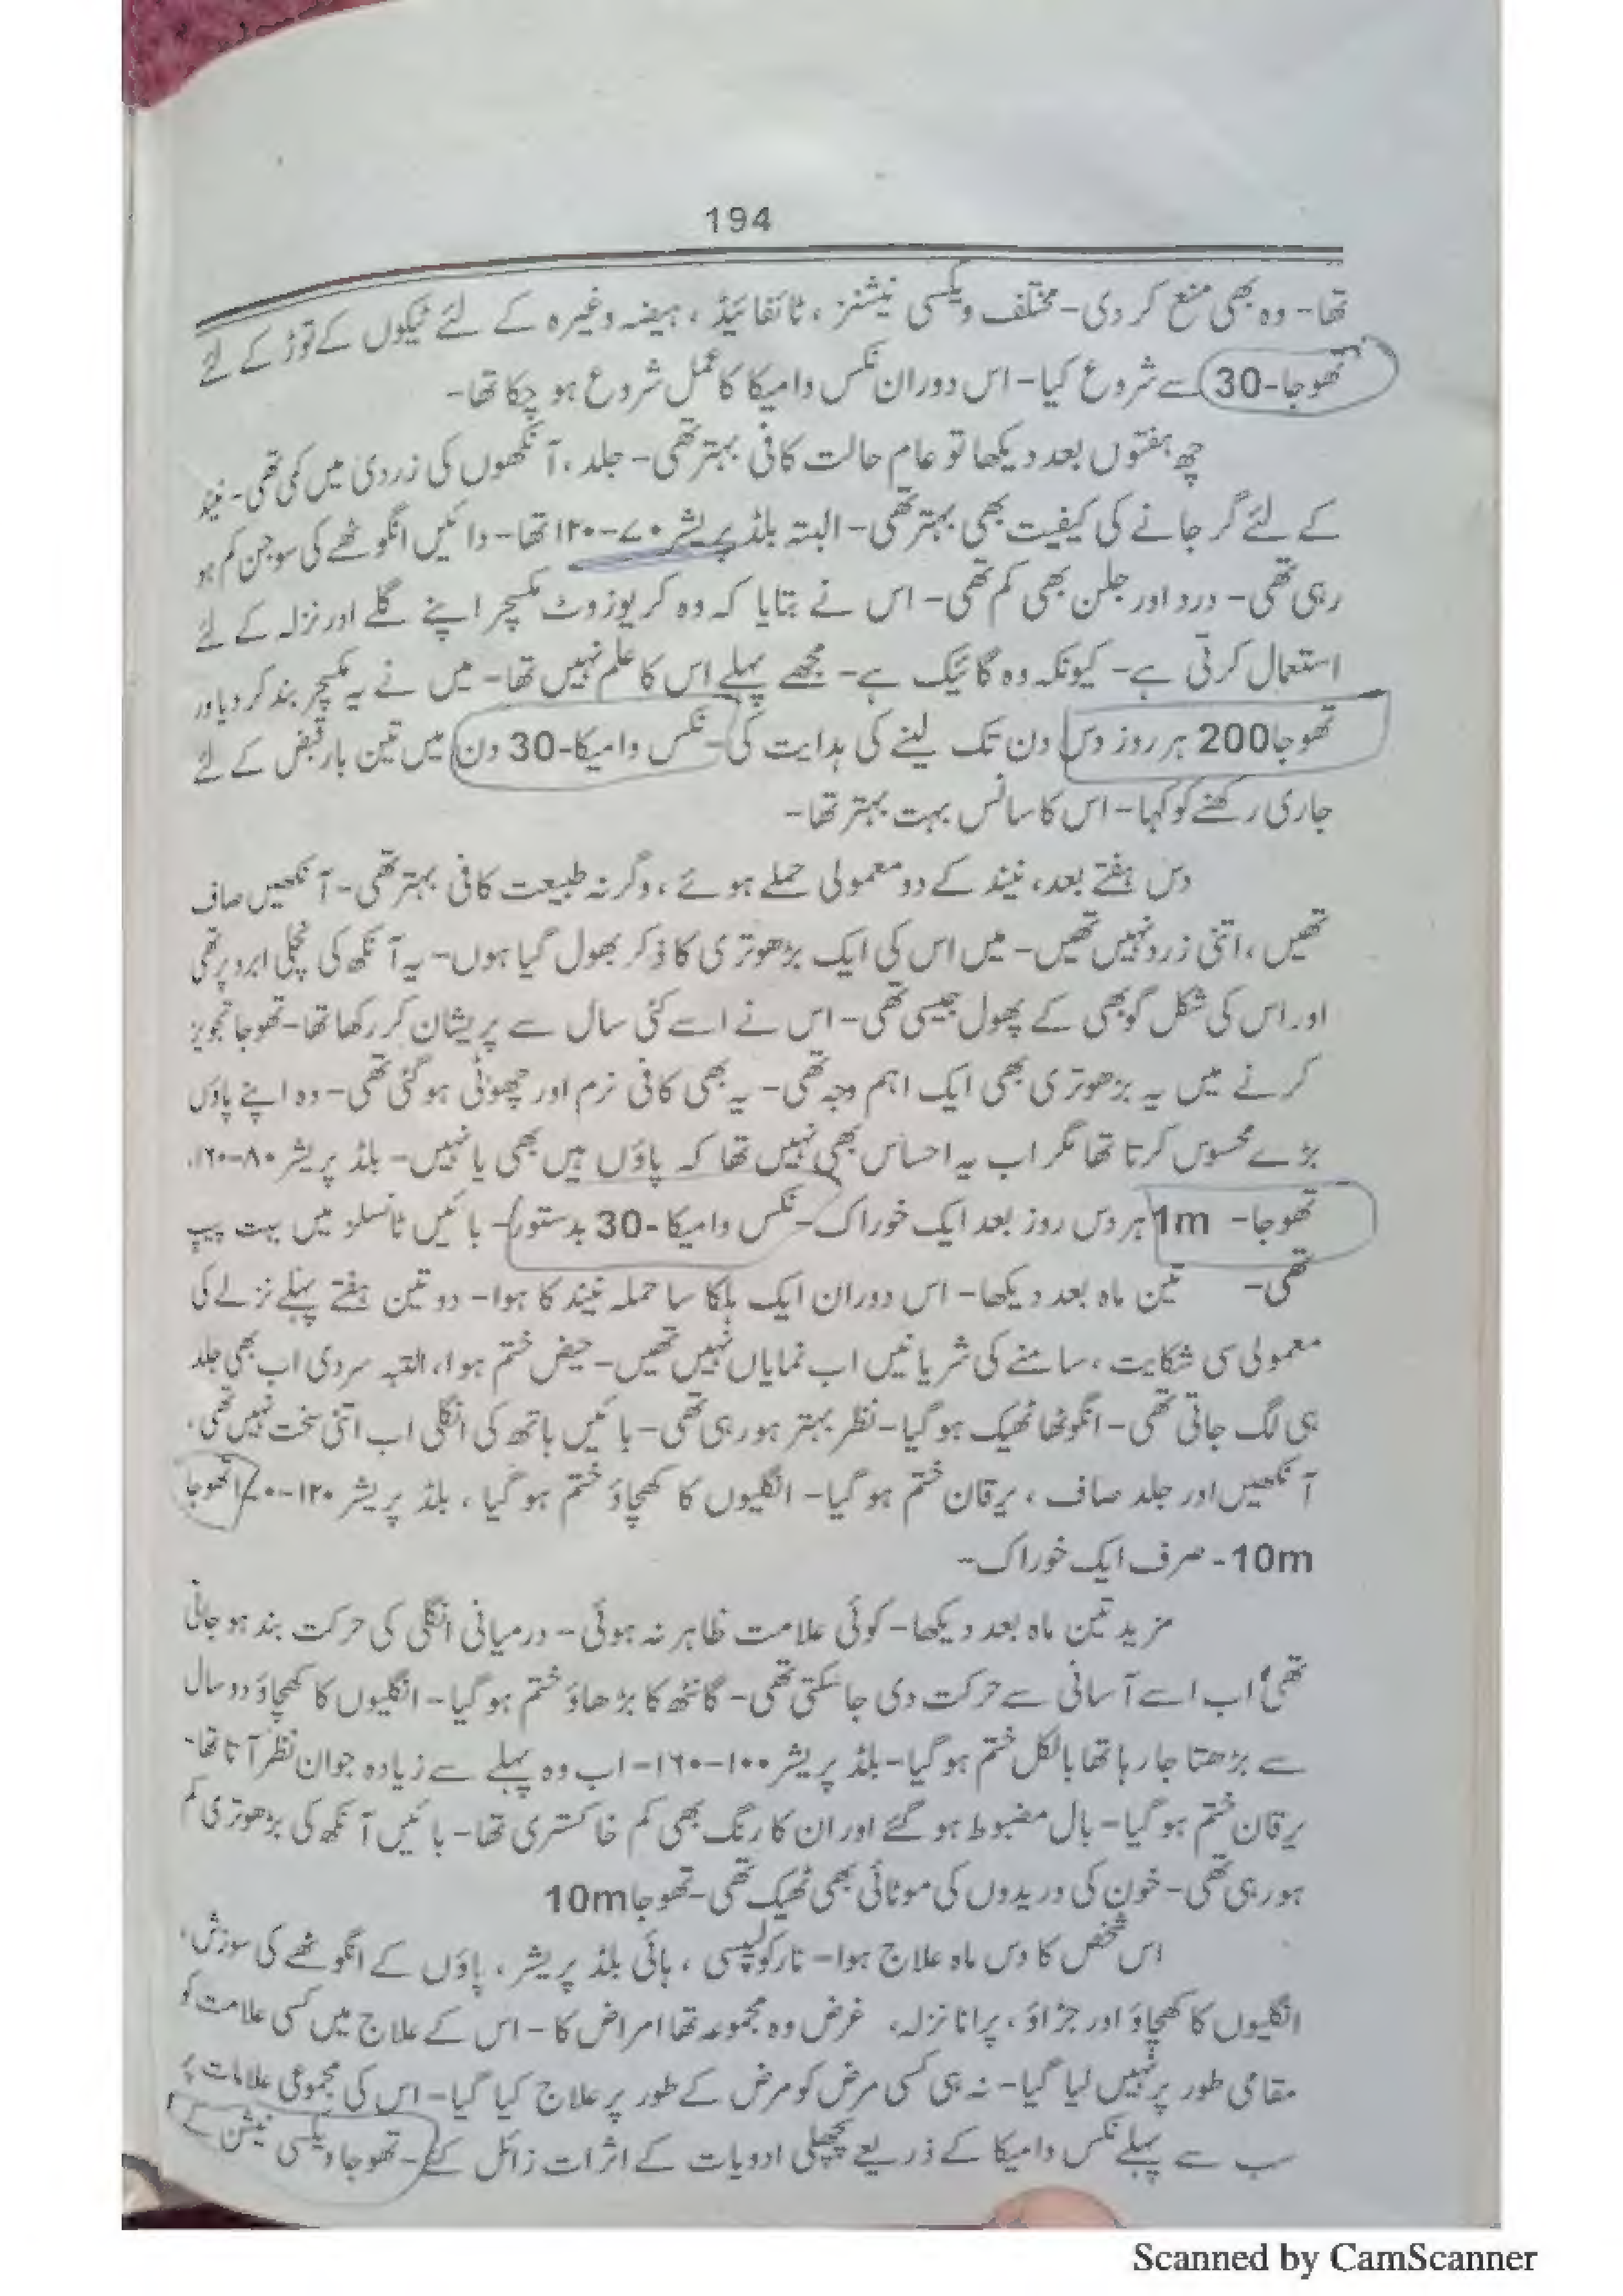 194
تھا- وہ بھی منع کر دی- مختلف ویکسی نیشنز ، ٹائفائیڈ ، ہیضہ وغیرہ کے لئے ٹیکوں کے توڑ کے لئے
تھوجا-30 سے شروع کیا- اس دوران نکس وامیکا کا عمل شروع ہو چکا تھا-
چھ ہفتوں بعد دیکھا تو عام حالت کافی بہتر تھی- جلد ، آنکھوں کی زردی میں کمی تھی- نیند
کے لئے گر جانے کی کیفیت بھی بہتر تھی- البتہ بلڈ پریشر ۷۰-۱۲۰ تھا- دائیں انگوٹھے کی سوجن کم ہو
رہی تھی- درد اور جلن بھی کم تھی- اس نے بتایا کہ وہ کریوزوٹ مکسچر اپنے گلے اور نزلہ کے لئے
استعمال کرتی ہے- کیونکہ وہ گائیک ہے- مجھے پہلے اس کا علم نہیں تھا- میں نے یہ مکسچر بند کر دیا اور
تھوجا 200 ہر روز دس دن تک لینے کی ہدایت کی- نکس وامیکا-30 دن میں تین بار قبض کے لئے
جاری رکھنے کو کہا- اس کا سانس بہت بہتر تھا-
دس ہفتے بعد، نیند کے دو معمولی حملے ہوئے ، وگرنہ طبیعت کافی بہتر تھی- آنکھیں صاف
تھیں ، اتنی زرد نہیں تھیں- میں اس کی ایک بڑھوتری کا ذکر بھول گیا ہوں- یہ آنکھ کی نچلی ابرو پر تھی
اور اس کی شکل گوبھی کے پھول جیسی تھی- اس نے اسے کئی سال سے پریشان کر رکھا تھا- تھوجا تجویز
کرنے میں یہ بڑھوتری بھی ایک اہم وجہ تھی- یہ بھی کافی نرم اور چھوٹی ہو گئی تھی- وہ اپنے پاؤں
بڑے محسوس کرتا تھا مگر اب یہ احساس بھی نہیں تھا کہ پاؤں ہیں بھی یا نہیں- بلڈ پریشر ۸۰-۱۶۰،
تھوجا- 1m ہر دس روز بعد ایک خوراک- نکس وامیکا-30 بدستور- بائیں ٹانسلز میں بہت پیپ
تھی- تین ماہ بعد دیکھا- اس دوران ایک ہلکا سا حملہ نیند کا ہوا- دو تین ہفتے پہلے نزلے کی
معمولی سی شکایت ، سامنے کی شریانیں اب نمایاں نہیں تھیں- حیض ختم ہوا، البتہ سردی اب بھی جلد
ہی لگ جاتی تھی- انگوٹھا ٹھیک ہو گیا- نظر بہتر ہو رہی تھی- بائیں ہاتھ کی انگلی اب اتنی سخت نہیں تھی،
آنکھیں اور جلد صاف ، یرقان ختم ہو گیا- انگلیوں کا کھچاؤ ختم ہو گیا ، بلڈ پریشر ۱۲۰-۷۰ تھوجا
10m - صرف ایک خوراک-
مزید تین ماہ بعد دیکھا- کوئی علامت ظاہر نہ ہوئی- درمیانی انگلی کی حرکت بند ہو جاتی
تھی، اب اسے آسانی سے حرکت دی جا سکتی تھی- گانٹھ کا بڑھاؤ ختم ہو گیا- انگلیوں کا کھچاؤ دو سال
سے بڑھتا جا رہا تھا بالکل ختم ہو گیا- بلڈ پریشر ۱۰۰-۱۶۰- اب وہ پہلے سے زیادہ جوان نظر آتا تھا-
یرقان ختم ہو گیا- بال مضبوط ہو گئے اور ان کا رنگ بھی کم خاکستری تھا- بائیں آنکھ کی بڑھوتری کم
ہو رہی تھی- خون کی وریدوں کی موٹائی بھی ٹھیک تھی- تھوجا 10m
اس شخص کا دس ماہ علاج ہوا- نارکولپسی ، ہائی بلڈ پریشر ، پاؤں کے انگوٹھے کی سوزش،
انگلیوں کا کھچاؤ اور جڑاؤ ، پرانا نزلہ، غرض وہ مجموعہ تھا امراض کا- اس کے علاج میں کسی علامت کو
مقامی طور پر نہیں لیا گیا- نہ ہی کسی مرض کو مرض کے طور پر علاج کیا گیا- اس کی مجموعی علامات پر
سب سے پہلے نکس وامیکا کے ذریعے پچھلی ادویات کے اثرات زائل کئے- تھوجا ویکسی نیشن کے
Scanned by CamScanner